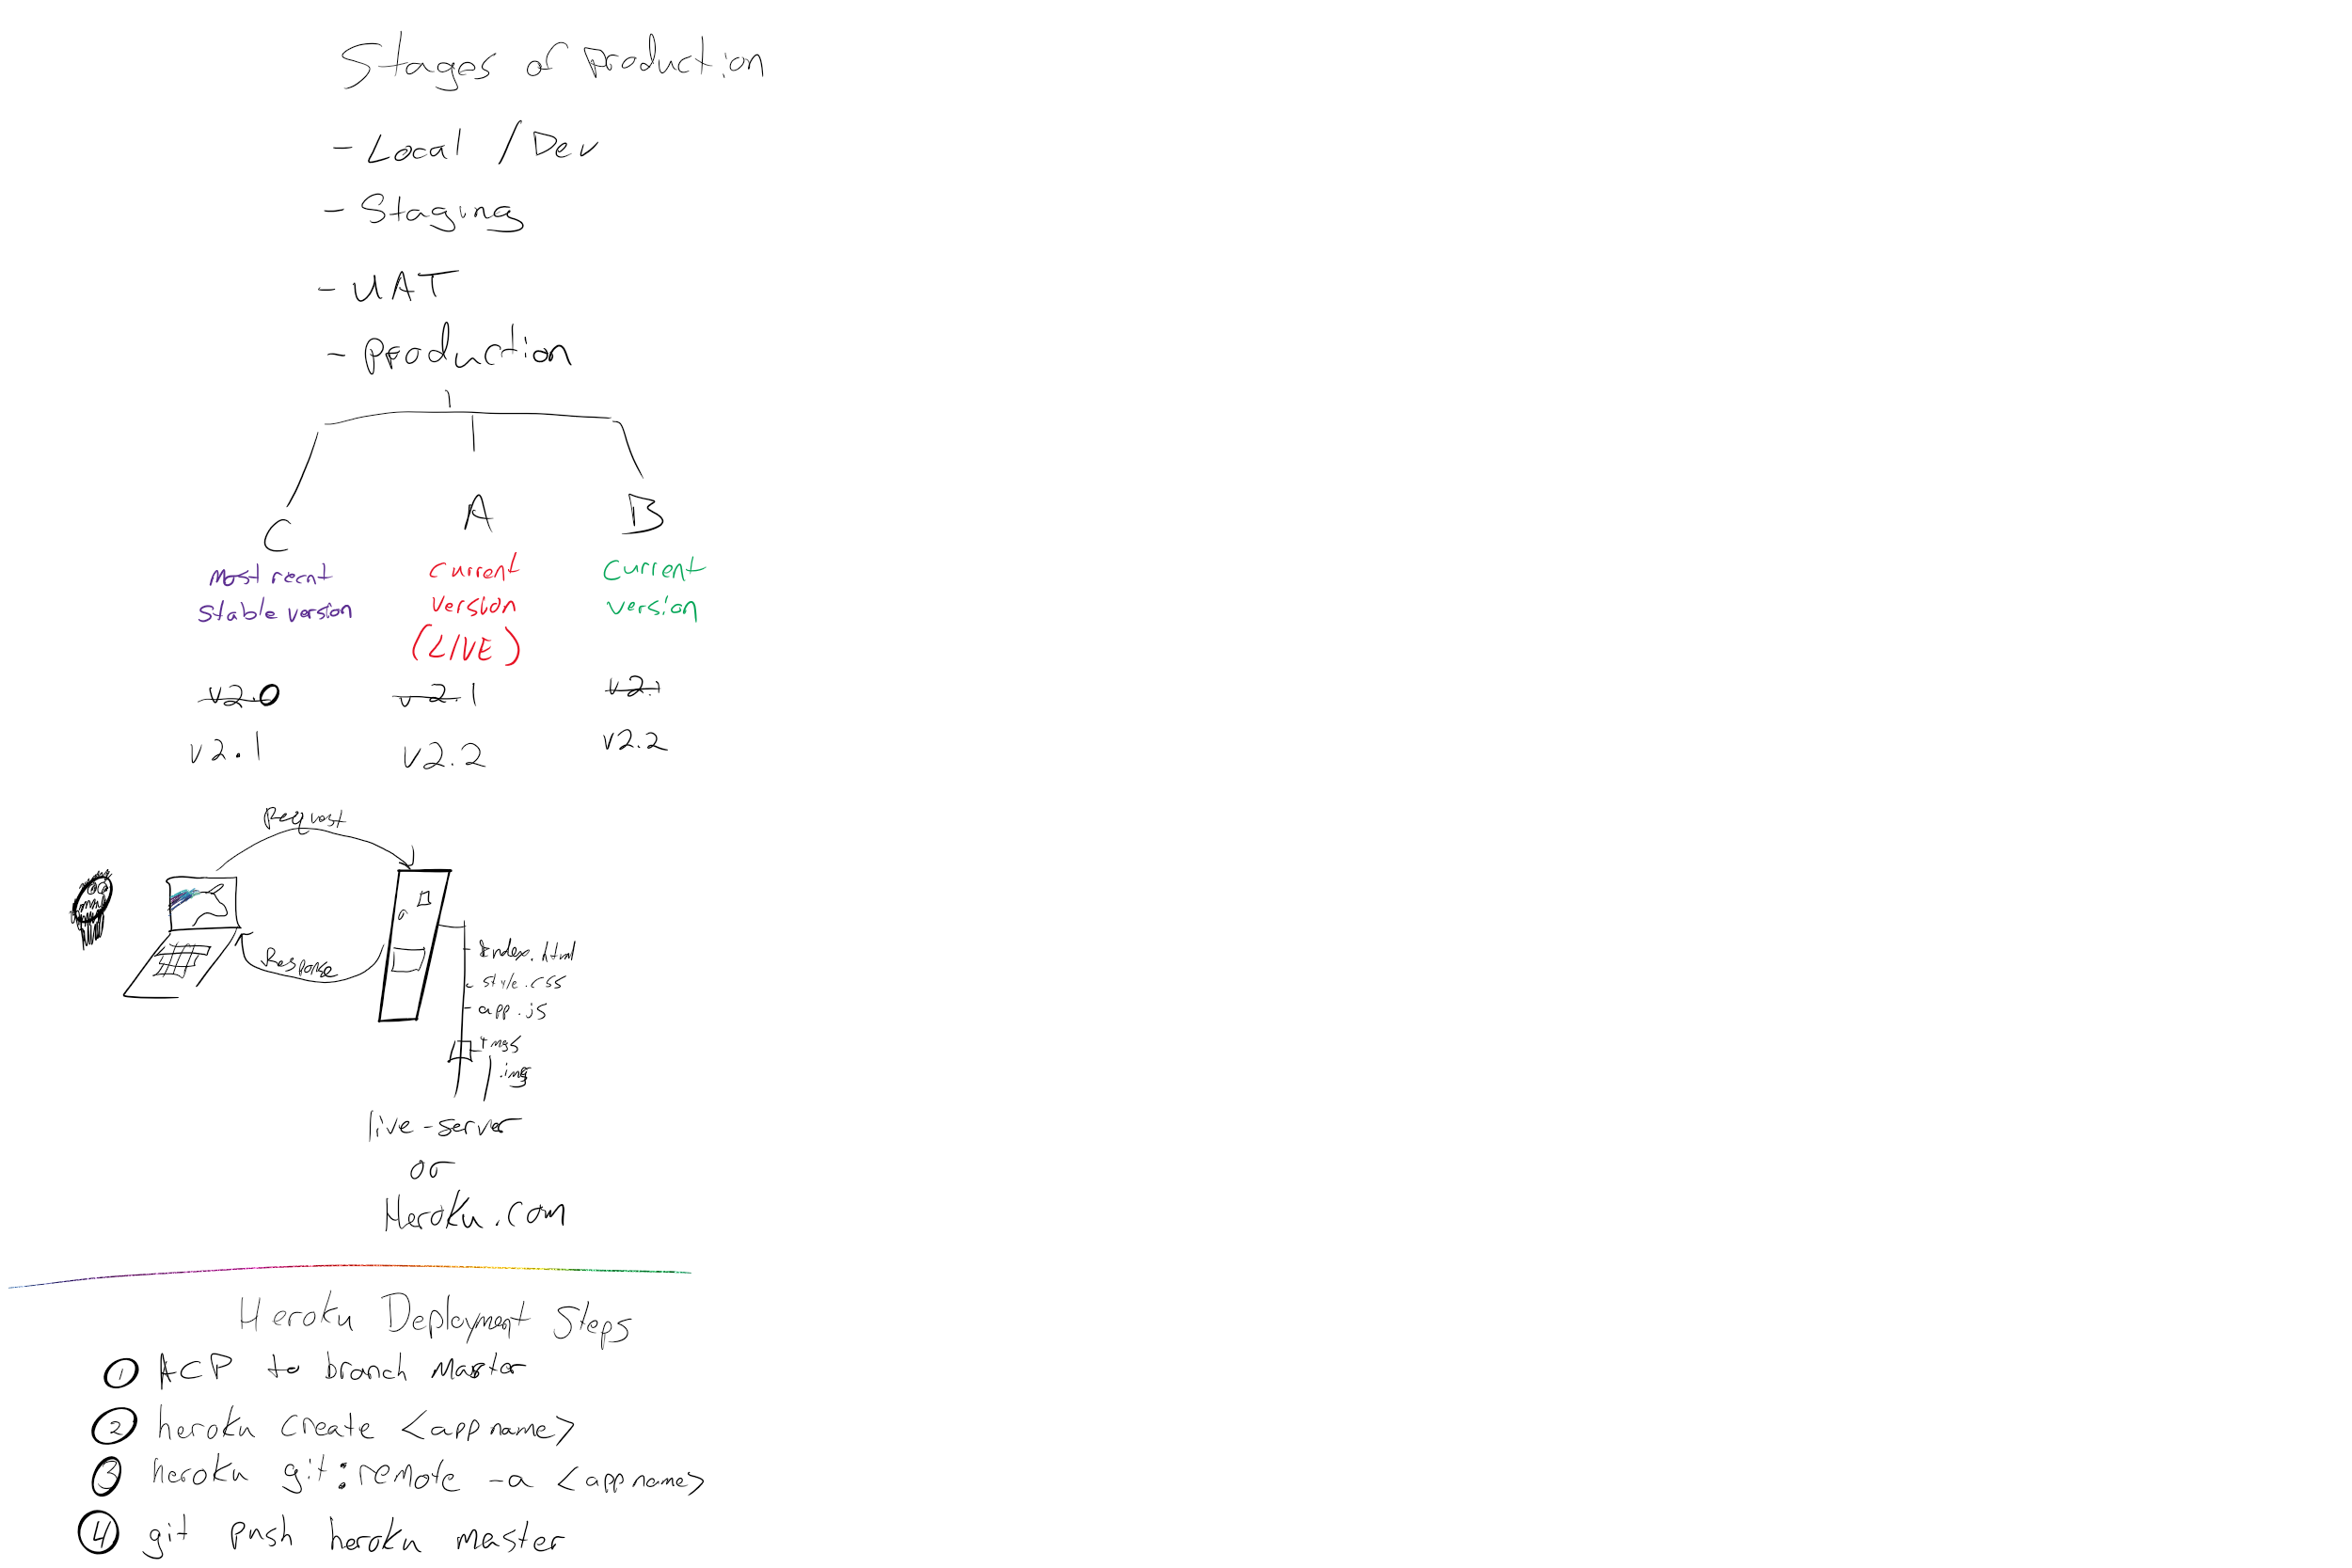 Stages of production
- Local / Dev
- Staging
- UAT
- Production
C A B
Most recnt
stable version
Current
version
(LIVE)
Current
version
v2.0 v2.1 v2.1
v2.1 v2.2 v2.2
Request
Response
index.html
style.css
app.js
imgs
.img
live-server
or
Heroku.com
Heroku Deployment Steps
1 ACP to branch Master
2 heroku create <app name>
3 heroku git:remote -a <app name>
4 git push heroku master